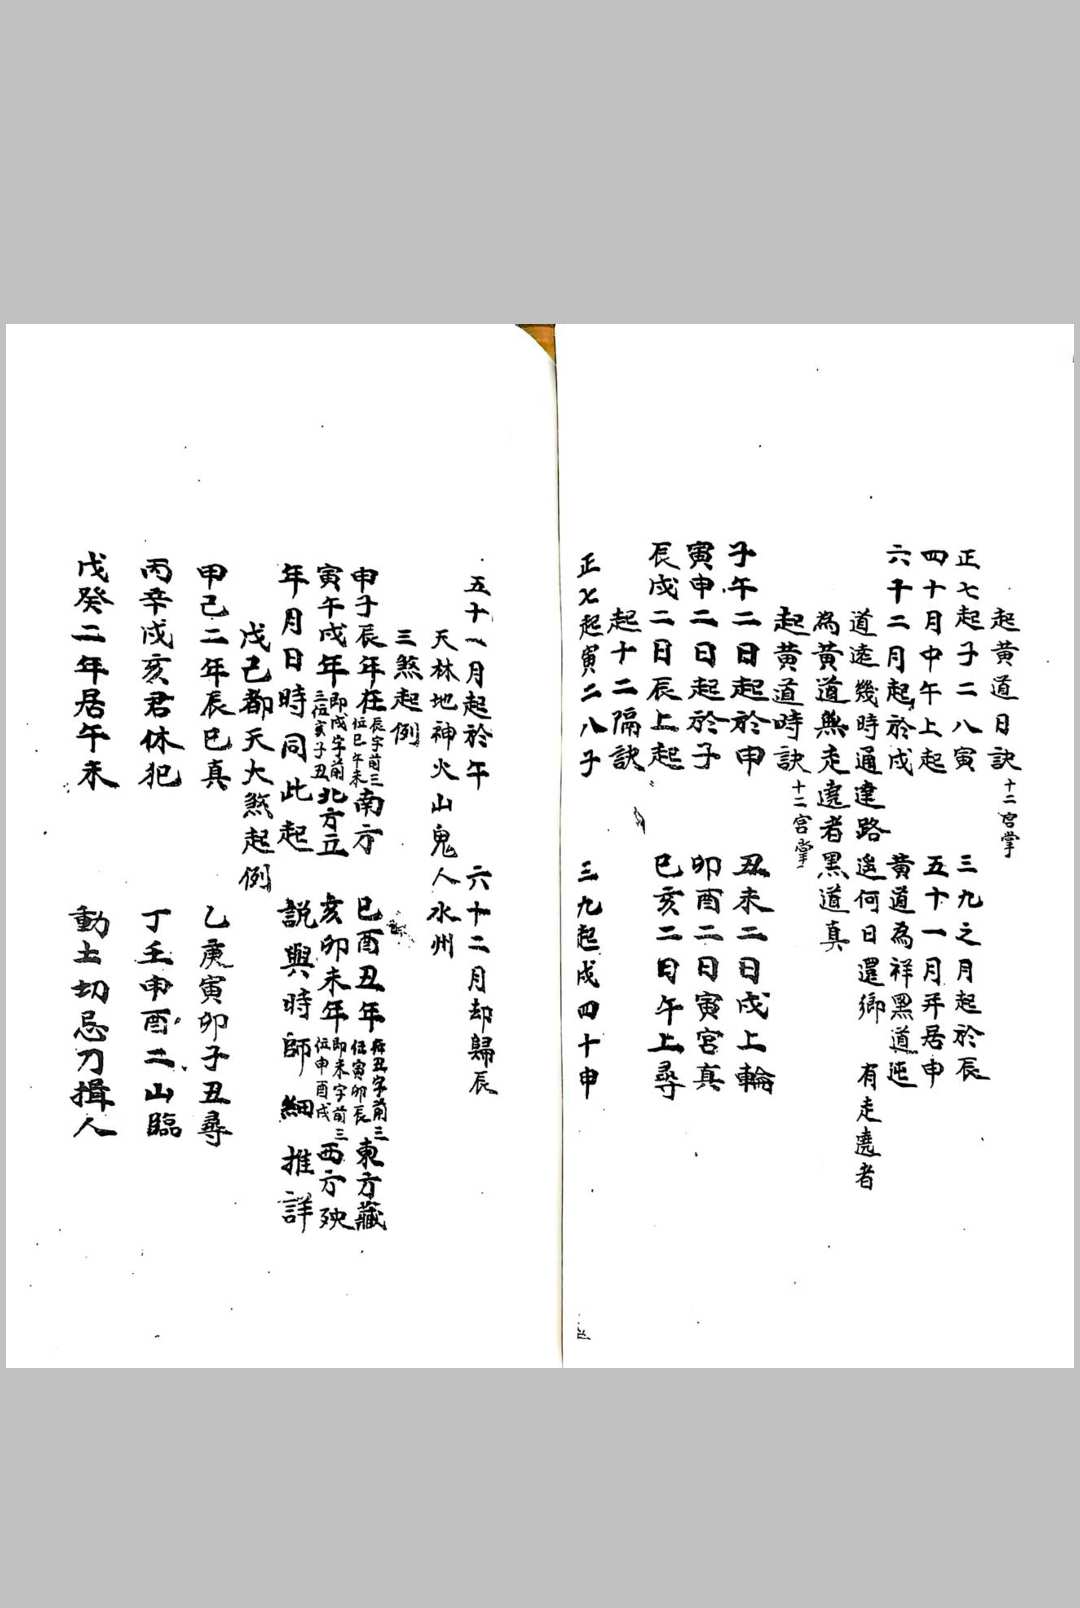 起黄道日訣十二宮掌
正七起子二八寅　三九之月起於辰
四十月中午上起　五十一月幷居申
六十二月起於戌　黄道為祥黑道迍
道遠幾時通達路　遙何日還鄉　有走遶者
為黄道無走遶者黑道真
起黄道時訣十二宮掌
子午二日起於申　丑未二日戌上輪
寅申二日起於子　卯酉二日寅宮真
辰戌二日辰上起　巳亥二日午上尋
起十二隔訣
正七起寅二八子　三九起戌四十申
五十一月起於午　六十二月却歸辰
天林地神火山鬼人水州
三煞起例
申子辰年在辰字前三位巳午未南方　巳酉丑年在丑字前三位寅卯辰東方藏
寅午戌年即戌字前三位亥子丑北方立　亥卯未年即未字前三位申酉戌西方殃
年月日時同此起　説與時師細推詳
戊己都天大煞起例
甲己二年辰巳真　乙庚寅卯子丑尋
丙辛戌亥君休犯　丁壬申酉二山臨
戊癸二年居午未　動土切忌刀損人